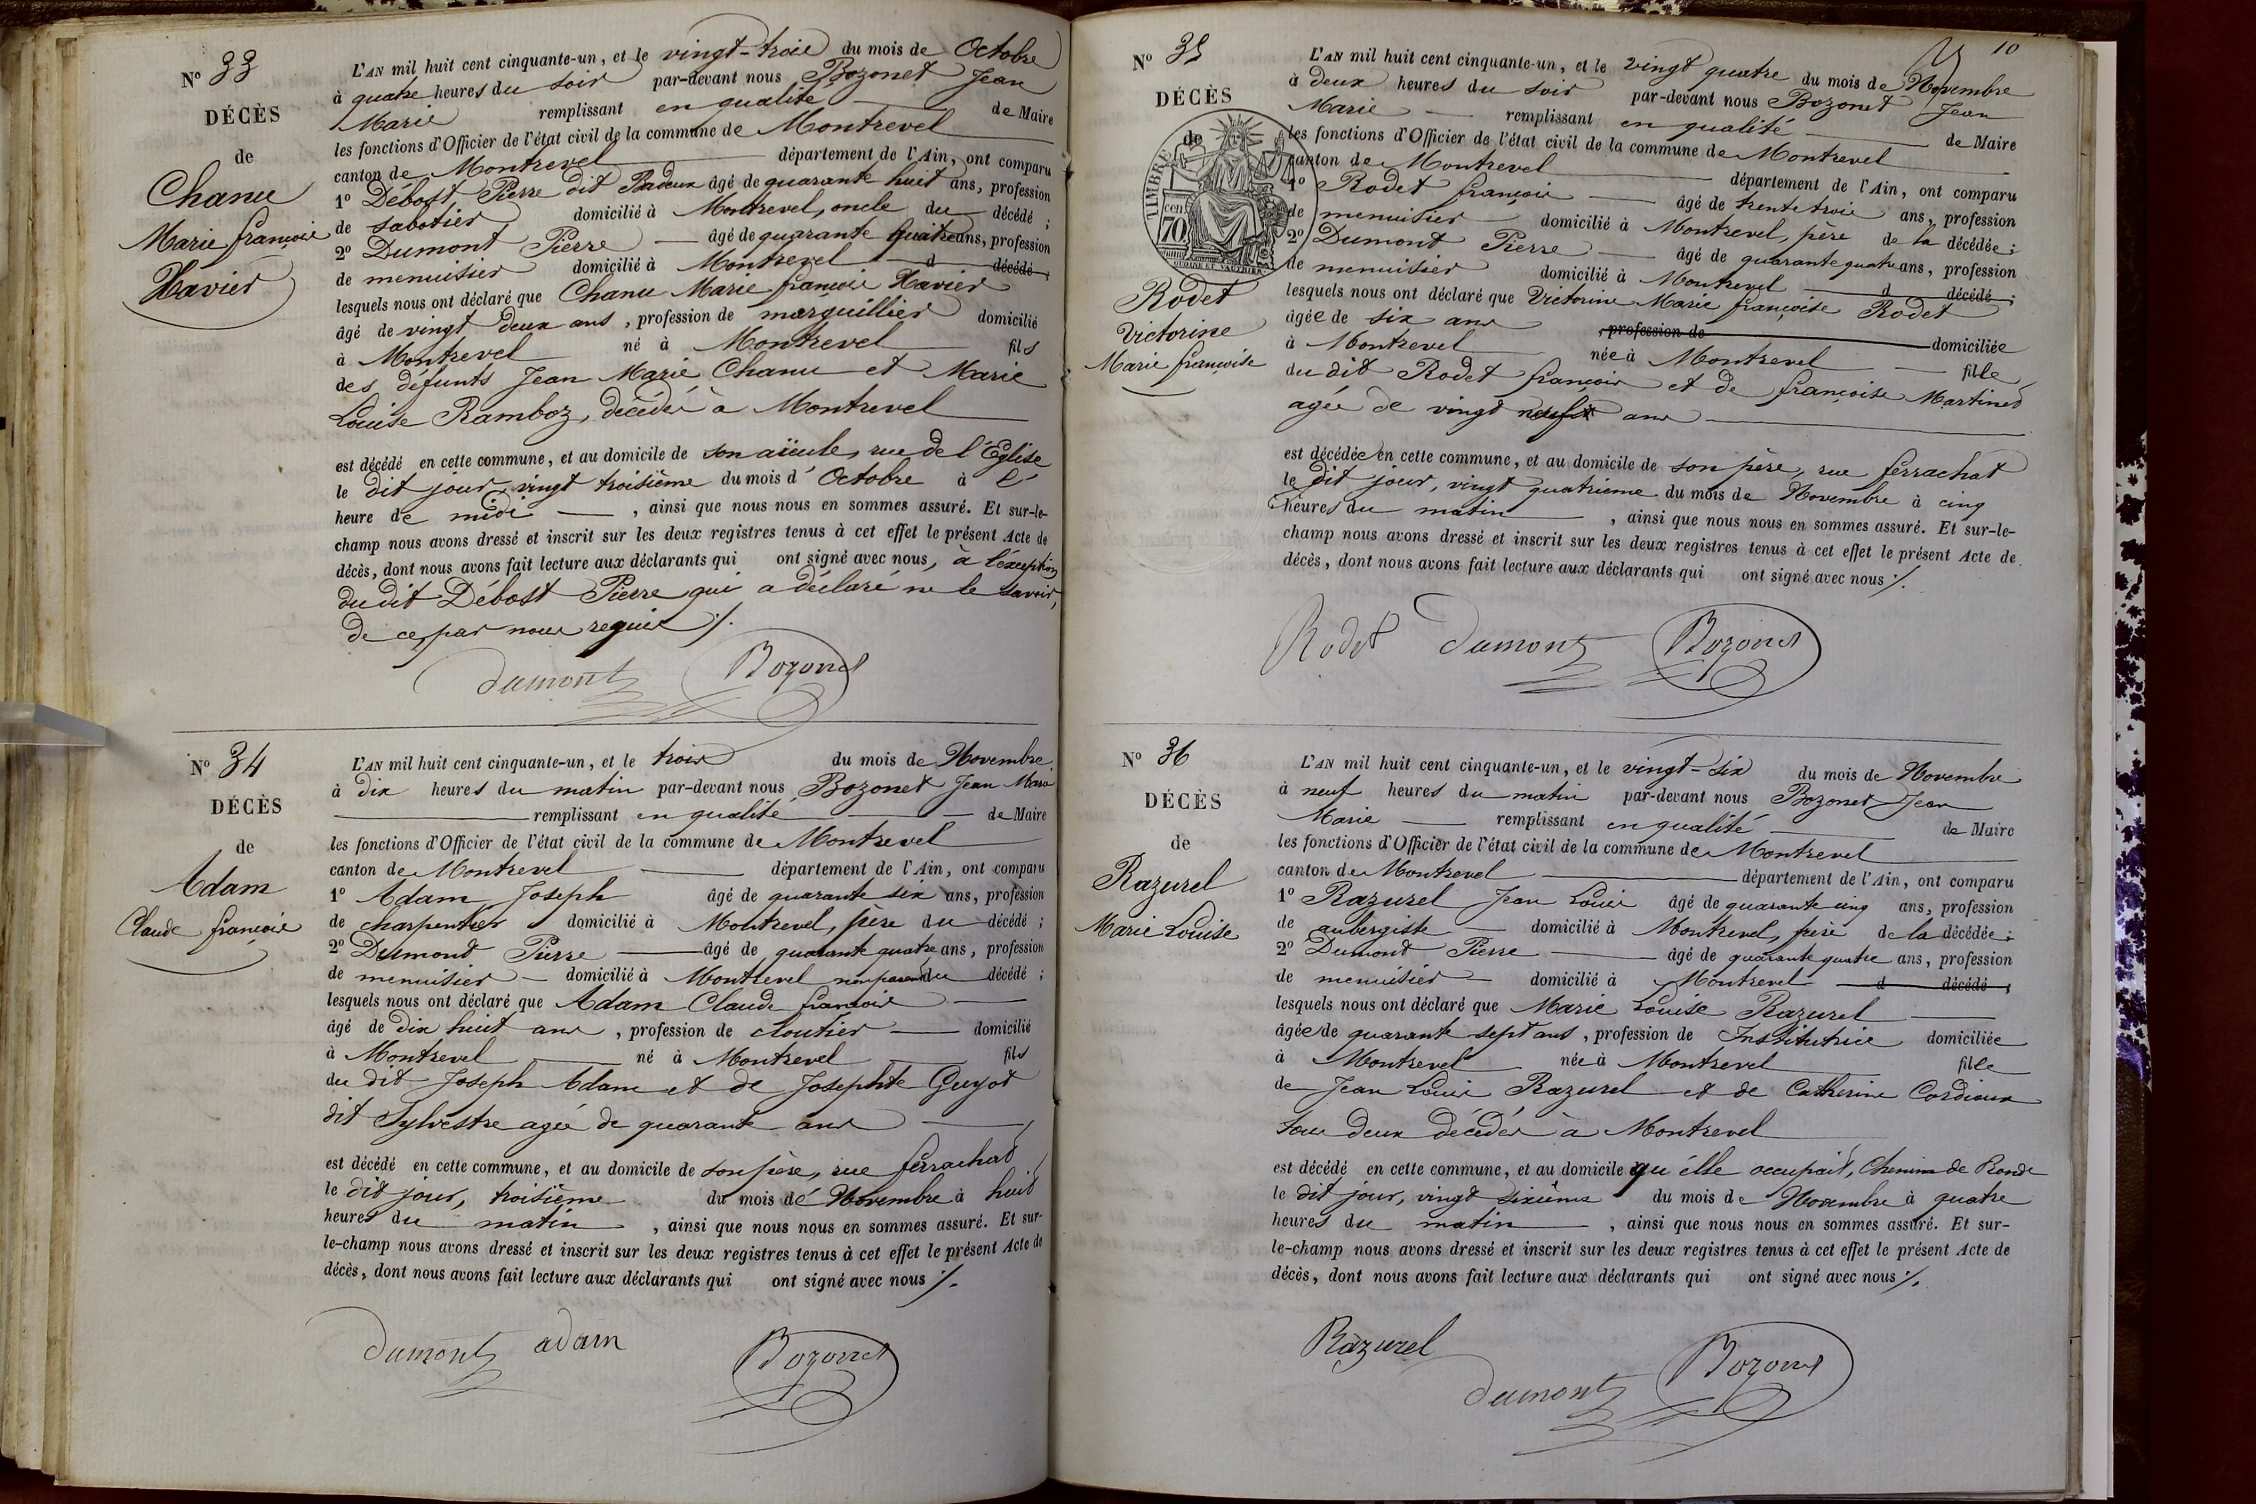 N° 33
DÉCÈS
de
Chanu
Marie françois
Xavier
L'AN mil huit cent cinquante-un, et le vingt-trois du mois de Octobre
à quatre heures du soir par-devant nous Bozonet Jean
Marie remplissant en qualité de Maire
les fonctions d'Officier de l'état civil de la commune de Montrevel
canton de Montrevel département de l'Ain, ont comparu
1° Débost Pierre dit Badoux âgé de quarante huit ans, profession
de sabotier domicilié à Montrevel, oncle du décédé;
2° Dumont Pierre âgé de quarante quatre ans, profession
de menuisier domicilié à Montrevel d décédé;
lesquels nous ont déclaré que Chanu Marie françois Xavier
âgé de vingt deux ans, profession de marguillier domicilié
à Montrevel né à Montrevel fils
des défunts Jean Marie Chanu et Marie
Louise Ramboz, décédés à Montrevel
est décédé en cette commune, et au domicile de son aïeule, rue de l'Eglise
le dit jour, vingt troisième du mois d'Octobre à l'
heure de midi, ainsi que nous nous en sommes assuré. Et sur-le-
champ nous avons dressé et inscrit sur les deux registres tenus à cet effet le présent Acte de
décès, dont nous avons fait lecture aux déclarants qui ont signé avec nous, à l'éxception
du dit Débost Pierre qui a déclaré ne le savoir,
de ce, par nous requis ./.
Dumont Bozonet
N° 34
DÉCÈS
de
Adam
Claude françois
L'AN mil huit cent cinquante-un, et le trois du mois de Novembre
à dix heures du matin par-devant nous Bozonet Jean Marie
remplissant en qualité de Maire
les fonctions d'Officier de l'état civil de la commune de Montrevel
canton de Montrevel département de l'Ain, ont comparu
1° Adam Joseph âgé de quarante six ans, profession
de charpentier domicilié à Montrevel, père du décédé;
2° Dumont Pierre âgé de quarante quatre ans, profession
de menuisier domicilié à Montrevel non parent du décédé;
lesquels nous ont déclaré que Adam Claude françois
âgé de dix huit ans, profession de cloutier domicilié
à Montrevel né à Montrevel fils
du dit Joseph Adam et de Josephte Guyot
dit Sylvestre agée de quarante ans
est décédé en cette commune, et au domicile de son père, rue ferrachat
le dit jour, troisième du mois de Novembre à huit
heures du matin, ainsi que nous nous en sommes assuré. Et sur-
le-champ nous avons dressé et inscrit sur les deux registres tenus à cet effet le présent Acte de
décès, dont nous avons fait lecture aux déclarants qui ont signé avec nous ./.
Dumont adam Bozonet
10
N° 35
DÉCÈS
de
TIMBRE
70
Rodet
Victorine
Marie françoise
L'AN mil huit cent cinquante-un, et le vingt quatre du mois de Novembre
à deux heures du soir par-devant nous Bozonet Jean
Marie remplissant en qualité de Maire
les fonctions d'Officier de l'état civil de la commune de Montrevel
canton de Montrevel département de l'Ain, ont comparu
1° Rodet françois âgé de trente trois ans, profession
de menuisier domicilié à Montrevel, père de la décédée;
2° Dumont Pierre âgé de quarante quatre ans, profession
de menuisier domicilié à Montrevel d décédé;
lesquels nous ont déclaré que Victorine Marie françoise Rodet
âgée de six ans, profession de domiciliée
à Montrevel née à Montrevel fille
du dit Rodet françois et de françoise Martinet
agée de vingt neuf ans
est décédée en cette commune, et au domicile de son père, rue ferrachat
le dit jour, vingt quatrième du mois de Novembre à cinq
heures du matin, ainsi que nous nous en sommes assuré. Et sur-le-
champ nous avons dressé et inscrit sur les deux registres tenus à cet effet le présent Acte de
décès, dont nous avons fait lecture aux déclarants qui ont signé avec nous ./.
Rodet Dumont Bozonet
N° 36
DÉCÈS
de
Razurel
Marie Louise
L'AN mil huit cent cinquante-un, et le vingt-six du mois de Novembre
à neuf heures du matin par-devant nous Bozonet Jean
Marie remplissant en qualité de Maire
les fonctions d'Officier de l'état civil de la commune de Montrevel
canton de Montrevel département de l'Ain, ont comparu
1° Razurel Jean Louis âgé de quarante cinq ans, profession
de aubergiste domicilié à Montrevel, frère de la décédée;
2° Dumont Pierre âgé de quarante quatre ans, profession
de menuisier domicilié à Montrevel d décédé;
lesquels nous ont déclaré que Marie Louise Razurel
âgée de quarante sept ans, profession de Institutrice domiciliée
à Montrevel née à Montrevel fille
de Jean Louis Razurel et de Catherine Cordioux
tous deux décédés à Montrevel
est décédé en cette commune, et au domicile qu'élle occupait, Chemin de Ronde
le dit jour, vingt sixième du mois de Novembre à quatre
heures du matin, ainsi que nous nous en sommes assuré. Et sur-
le-champ nous avons dressé et inscrit sur les deux registres tenus à cet effet le présent Acte de
décès, dont nous avons fait lecture aux déclarants qui ont signé avec nous ./.
Razurel Dumont Bozonet